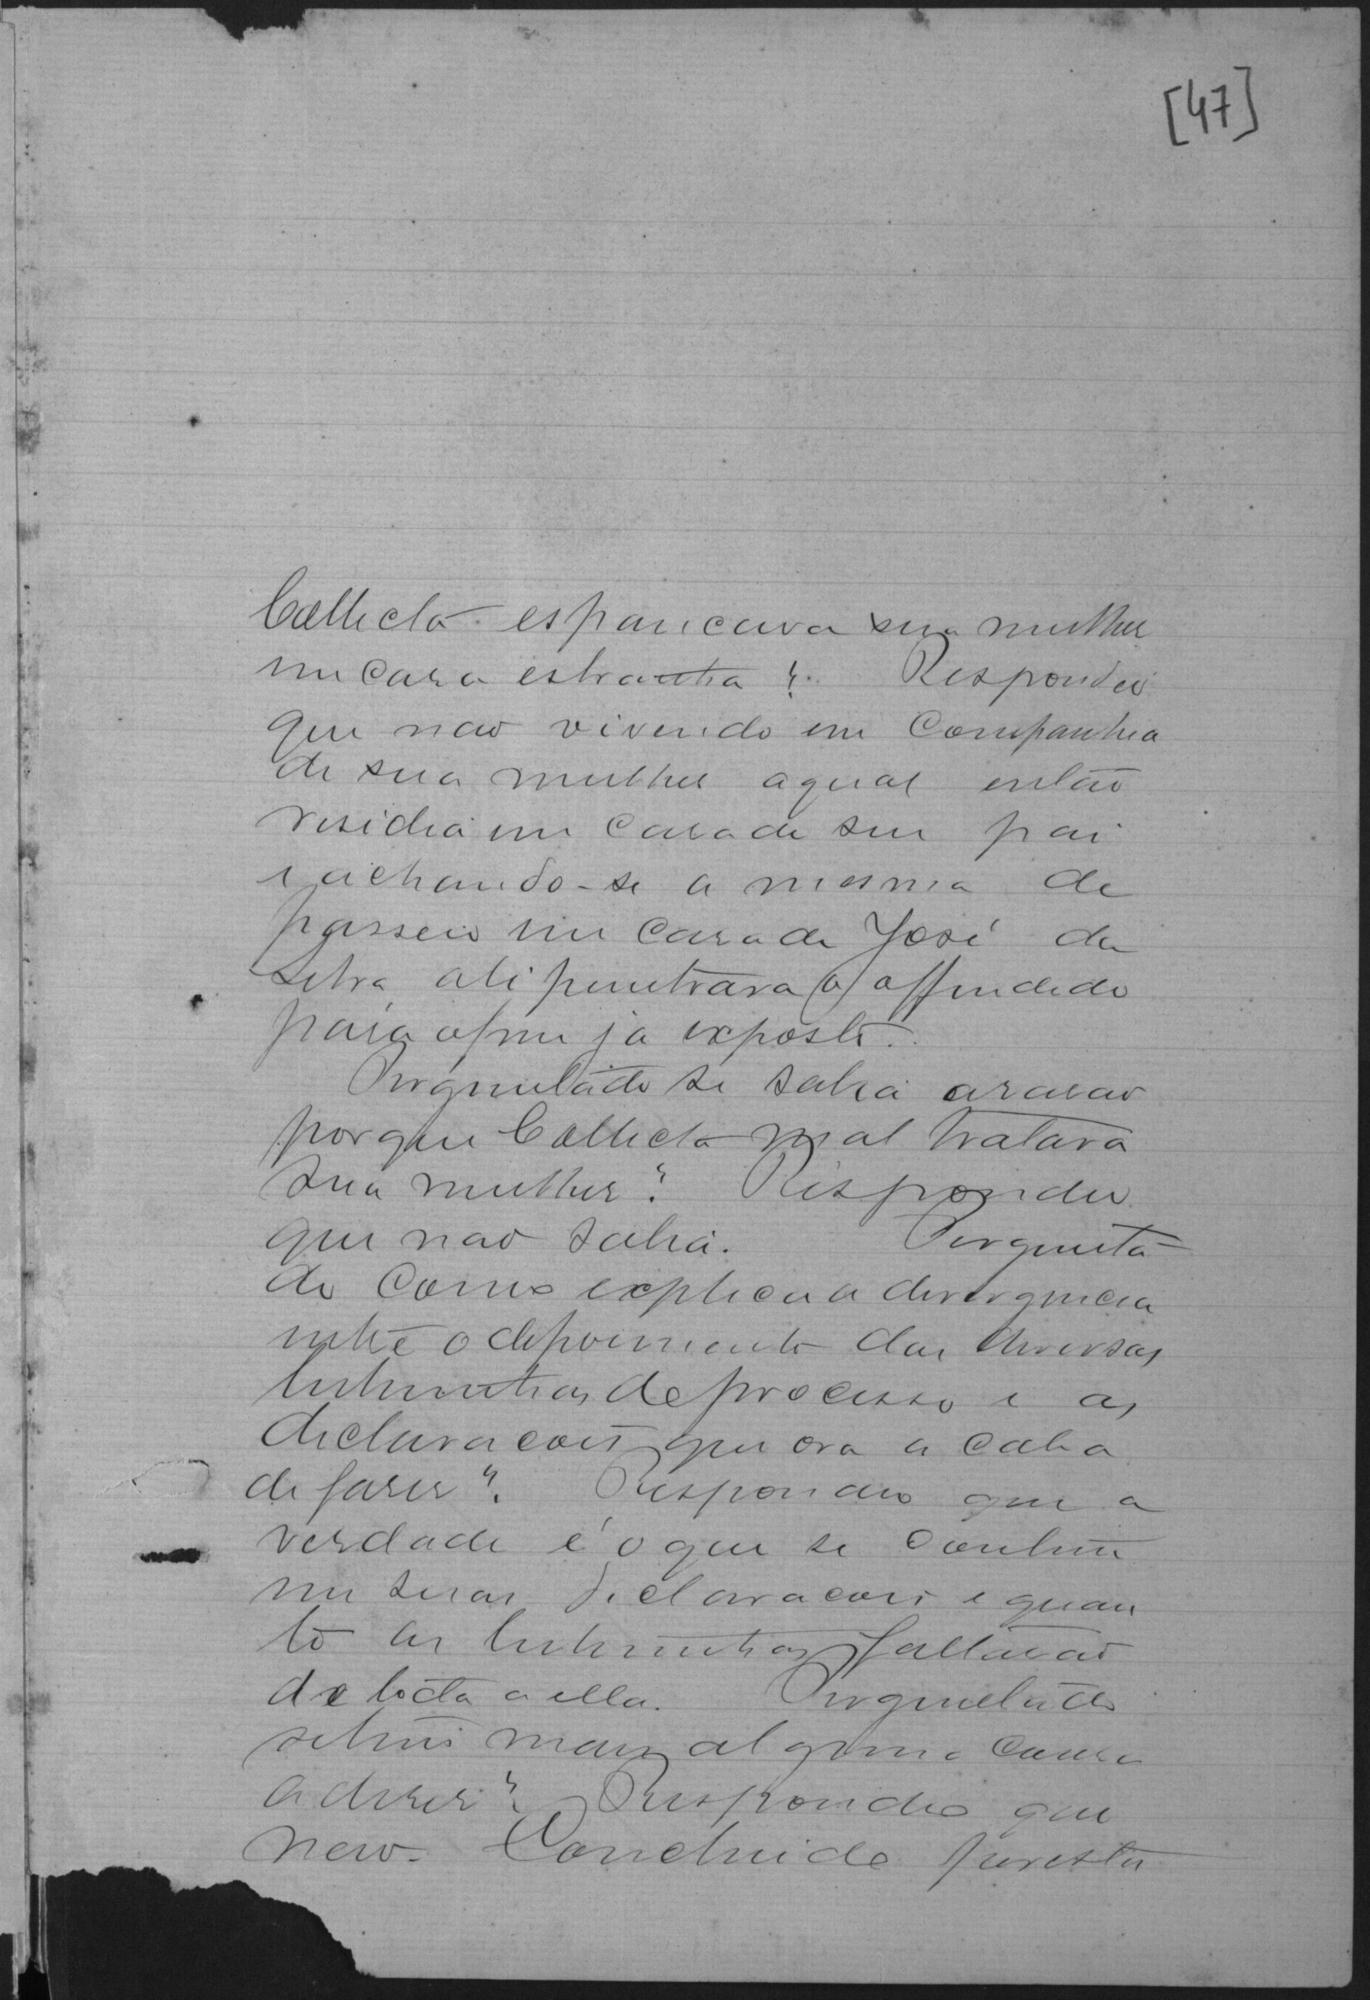 [47]
Callecto espancava sua mulher
em casa estranha? Respondeu
que nao vivendo em Companhia
de sua mulher aqual então
residia em casa de seu pai
e achando-se a mesma de
passeio em casa de José da
Silva ali penetrara o offendido
para o fim ja exposto.
Perguntado se sabia a rasao
porque Callecto mal tratava
sua mulher? Respondeu
que nao sabia. Pergunta
do como explica a divergencia
entre o depoimento das diversas
testemunhas de processo e as
declaracoes que ora a caba
de faser? Respondeu que a
verdade é o que se contem
em suas declaracoes e quan
to as testemunhas faltarao
de toda a ella. Perguntado
se tem mais alguma cousa
a diser? Respondeu que
nao. Concluido